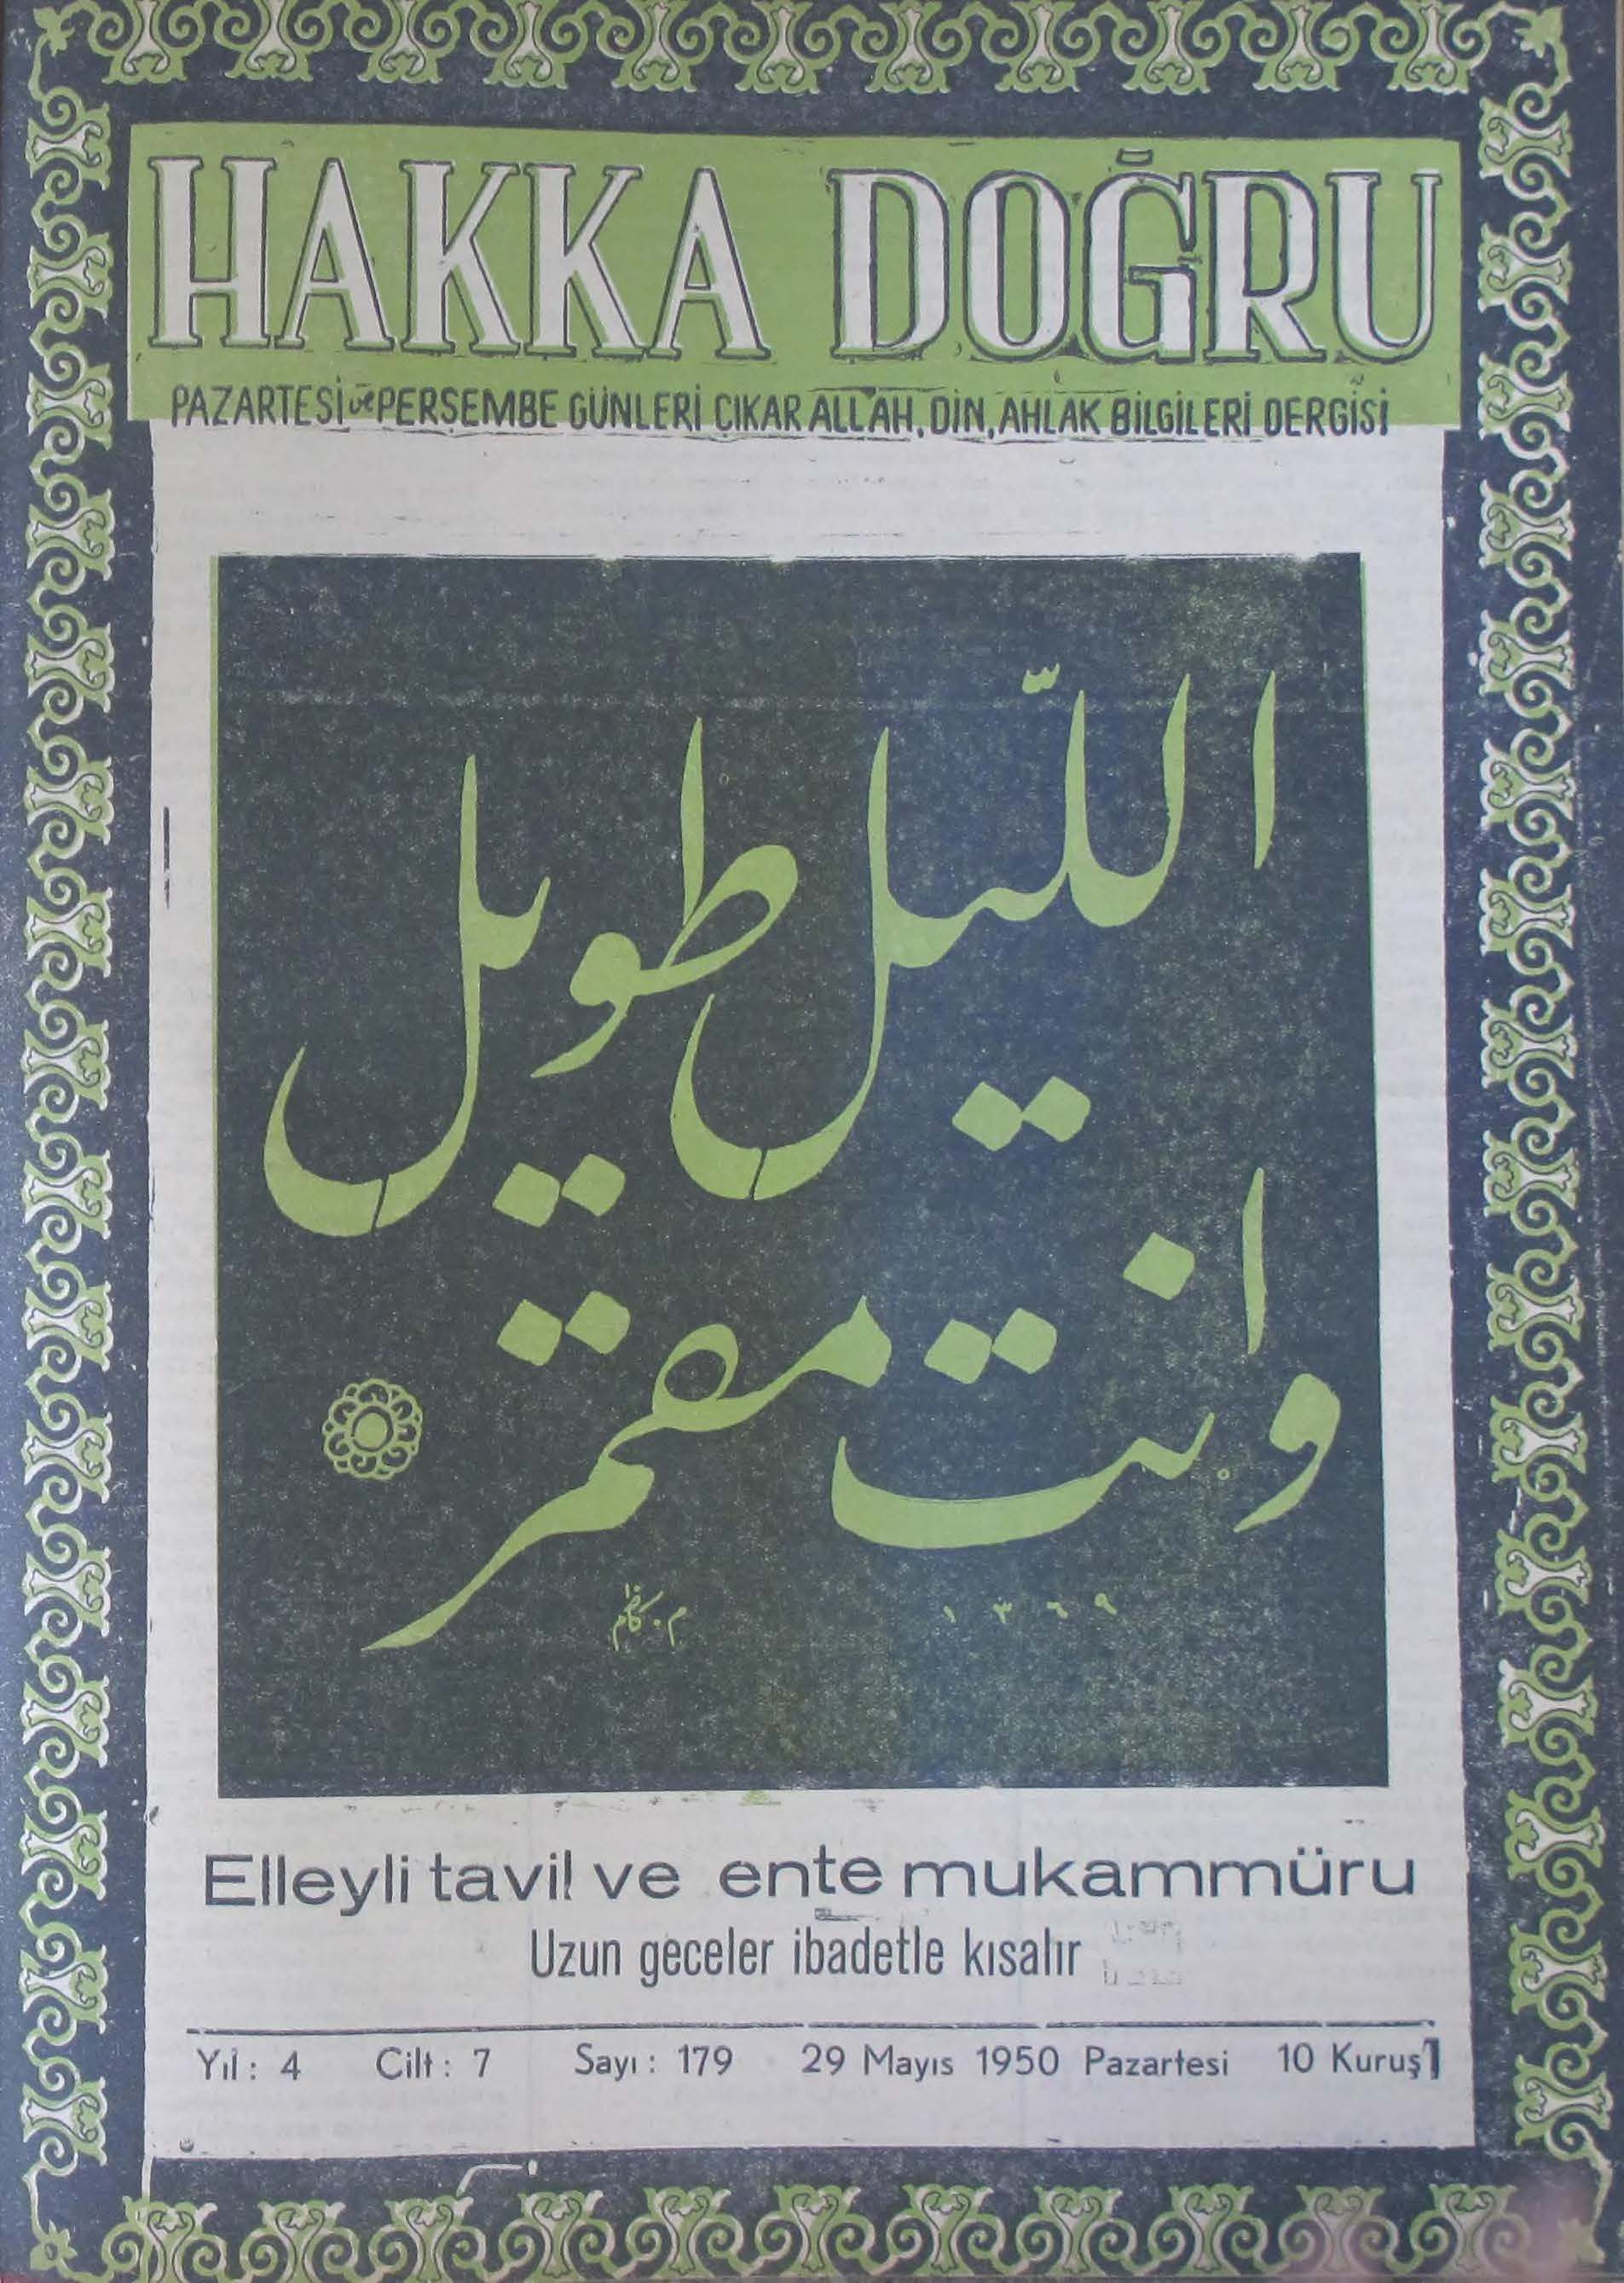 HAKKA DOĞRU
PAZARTESİ ve PERŞEMBE GÜNLERİ ÇIKAR ALLAH, DİN, AHLAK BİLGİLERİ DERGİSİ
الليّل طويل
وانت مقمر
م. كاظم ١٣٦٩
Elleyli tavil ve ente mukammürü
Uzun geceler ibadetle kısalır
Yıl : 4 Cilt : 7 Sayı : 179 29 Mayıs 1950 Pazartesi 10 Kuruş